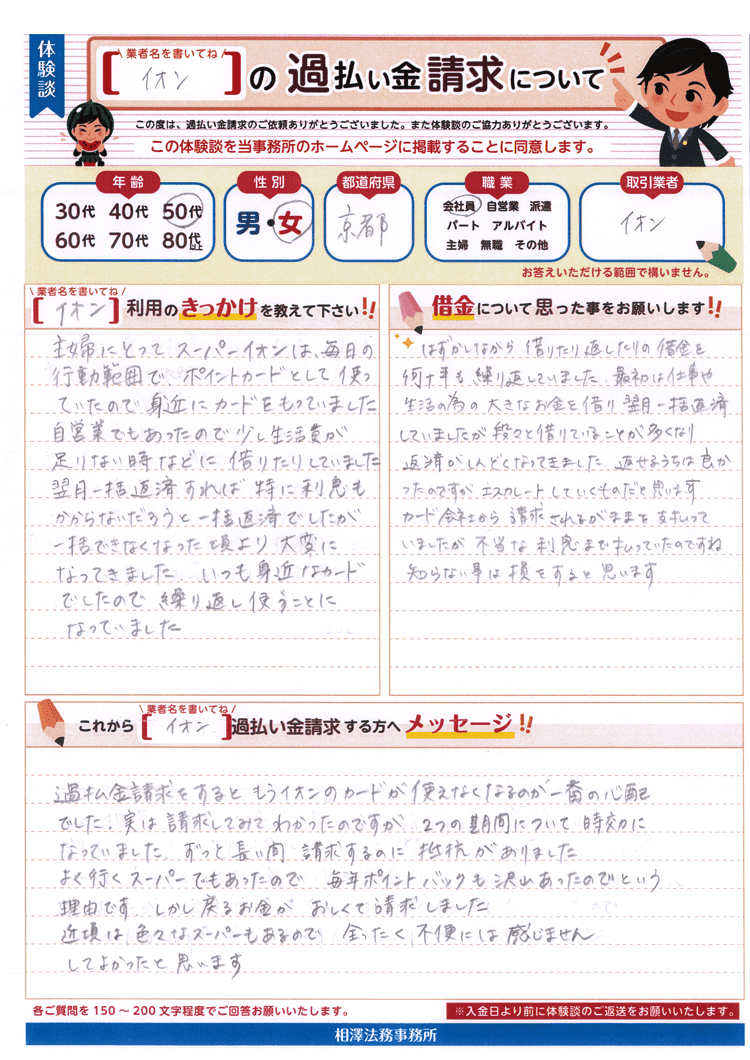 体験談
業者名を書いてね
[イオン]の過払い金請求について
この度は、過払い金請求のご依頼ありがとうございました。また体験談のご協力ありがとうございます。
この体験談を当事務所のホームページに掲載することに同意します。
年齢
30代 40代 50代
60代 70代 80代以上
性別
男・女
都道府県
京都
職業
会社員 自営業 派遣
パート アルバイト
主婦 無職 その他
取引業者
イオン
お答えいただける範囲で構いません。
業者名を書いてね
[イオン]利用のきっかけを教えて下さい!!
主婦にとって スーパーイオンは、毎日の
行動範囲で、ポイントカードとして使っ
ていたので身近にカードをもっていました
自営業でもあったので少し生活費が
足りない時などに 借りたりしていました
翌月一括返済すれば 特に利息も
かからないだろうと一括返済でしたが
一括できなくなった頃より大変に
なってきました。いつも身近なカード
でしたので 繰り返し使うことに
なっていました
借金について思った事をお願いします!!
はずかしながら 借りたり返したりの借金を
何十年も繰り返していました。最初は仕事や
生活の為の大きなお金を借り 翌月一括返済
していましたが段々と借りていることが多くなり
返済がしんどくなってきました。返せるうちは良か
ったのですが エスカレートしていくものだと思います
カード会社から 請求されるがままを支払って
いましたが 不当な利息まで払っていたのですね
知らない事は損をすると思います
業者名を書いてね
これから[イオン]過払い金請求する方へメッセージ!!
過払金請求をすると もうイオンのカードが使えなくなるのが一番の心配
でした。実は請求してみてわかったのですが、2つの期間について時効に
なっていました。ずっと長い間 請求するのに 抵抗がありました
よく行くスーパーでもあったので 毎年ポイントバックも沢山あったのでという
理由です。しかし戻るお金が おしくて請求しました
近頃は色々なスーパーもあるので 全ったく不便には感じません
してよかったと思います
各ご質問を150〜200文字程度でご回答お願いいたします。
※入金日より前に体験談のご返送をお願いいたします。
相澤法務事務所